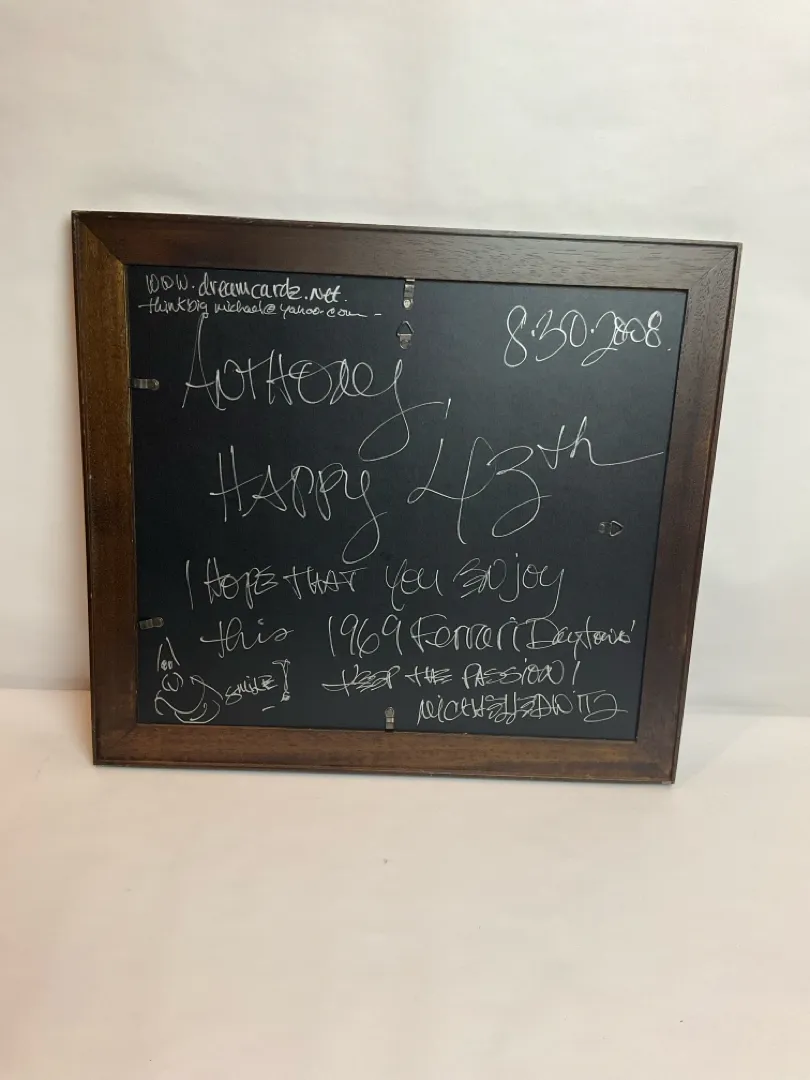 www.dreamcardz.net.
thinkbigmichael@yahoo.com -
8.30.2008.
ANTHONY,
HAPPY 43th
I HOPE THAT YOU ENJOY
this 1969 Ferrari Daytona!
KEEP THE PASSION!
SMILE!